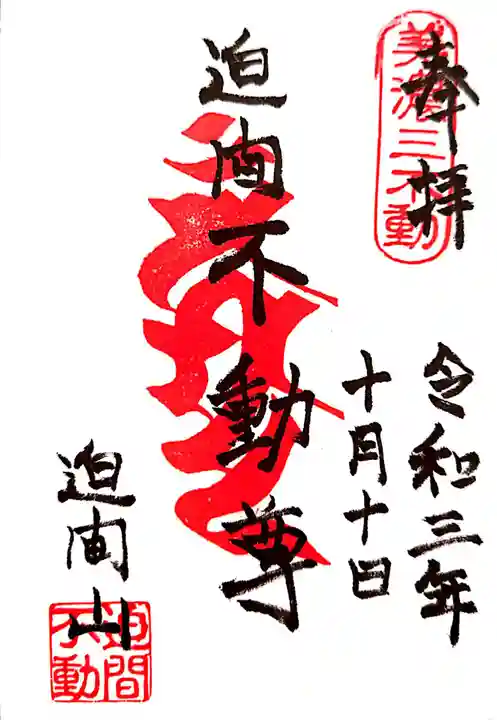 奉拝
美濃三不動
令和三年
十月十日
迫間不動尊
迫間山
迫間不動